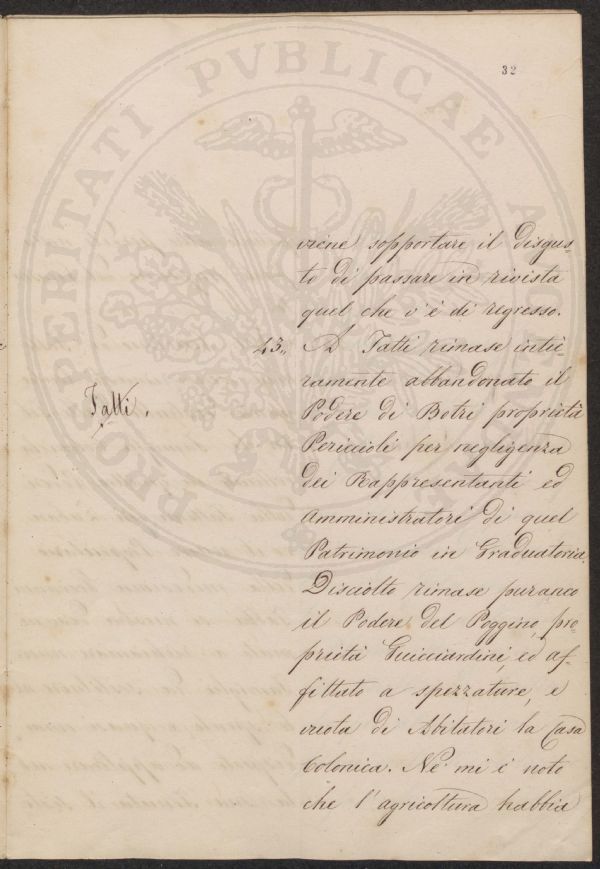 32
viene sopportare il disgus=
to di passare in rivista
quel che v'è di regresso.
43,, A Tatti rimase intie=
ramente abbandonato il
Tatti.
Podere di Botri proprietà
Periccioli per negligenza
dei Rappresentanti ed
Amministratori di quel
Patrimonio in Graduatoria.
Disciolto rimase puranco
il Podere del Poggino pro=
prietà Guicciardini, ed af=
fittato a spezzature, e
vuota di Abitatori la Casa
Colonica. Ne' mi è noto
che l'agricoltura habbia
PROSPERITATI PVBLICAE